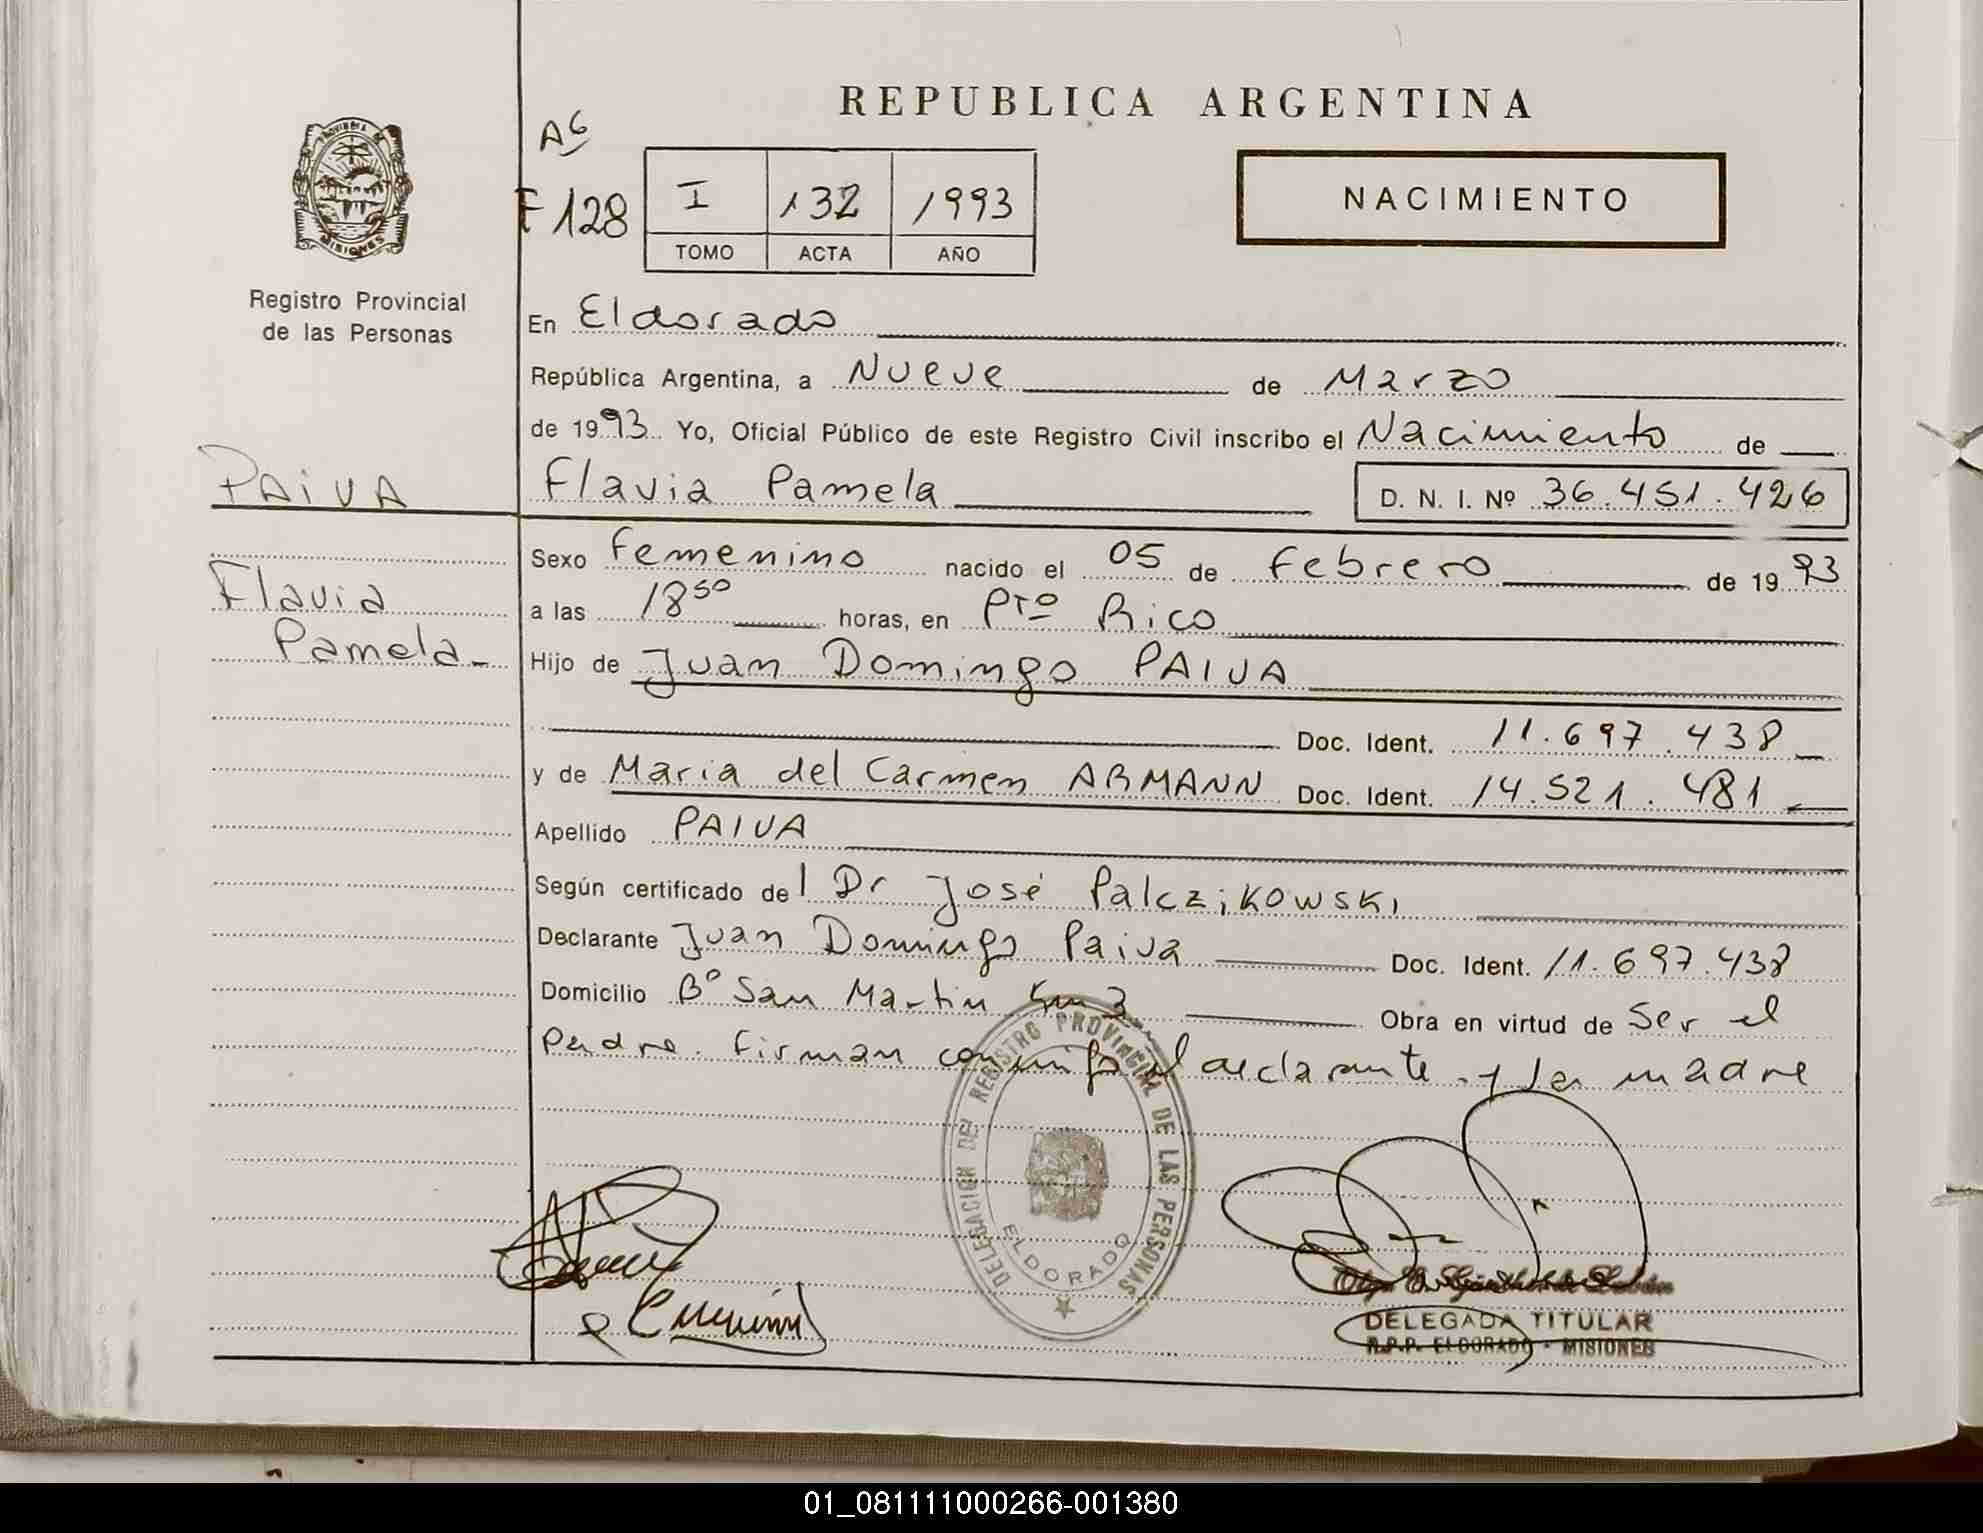 REPUBLICA ARGENTINA
PROVINCIA DE
MISIONES
A6
F 128
I 132 1993
TOMO ACTA AÑO
NACIMIENTO
Registro Provincial
de las Personas
En Eldorado
República Argentina, a Nueve de Marzo
de 1993. Yo, Oficial Público de este Registro Civil inscribo el Nacimiento de
PAIVA
Flavia Pamela D. N. I. Nº 36.451.426
Sexo Femenino nacido el 05 de Febrero de 1993
Flavia
a las 18 50 horas, en Pto Rico
Pamela
Hijo de Juan Domingo PAIVA
Doc. Ident. 11.697.438
y de Maria del Carmen ARMANN Doc. Ident. 14.521.481
Apellido PAIVA
Según certificado del Dr José Palczikowski
Declarante Juan Domingo Paiva Doc. Ident. 11.697.438
Domicilio Bº San Martin Km 3 Obra en virtud de Ser el
Padre. Firman conmigo el declarante y la madre
DELEGACION DEL REGISTRO PROVINCIAL DE LAS PERSONAS
ELDORADO
DELEGADA TITULAR
R.P.P. ELDORADO - MISIONES
01_081111000266-001380